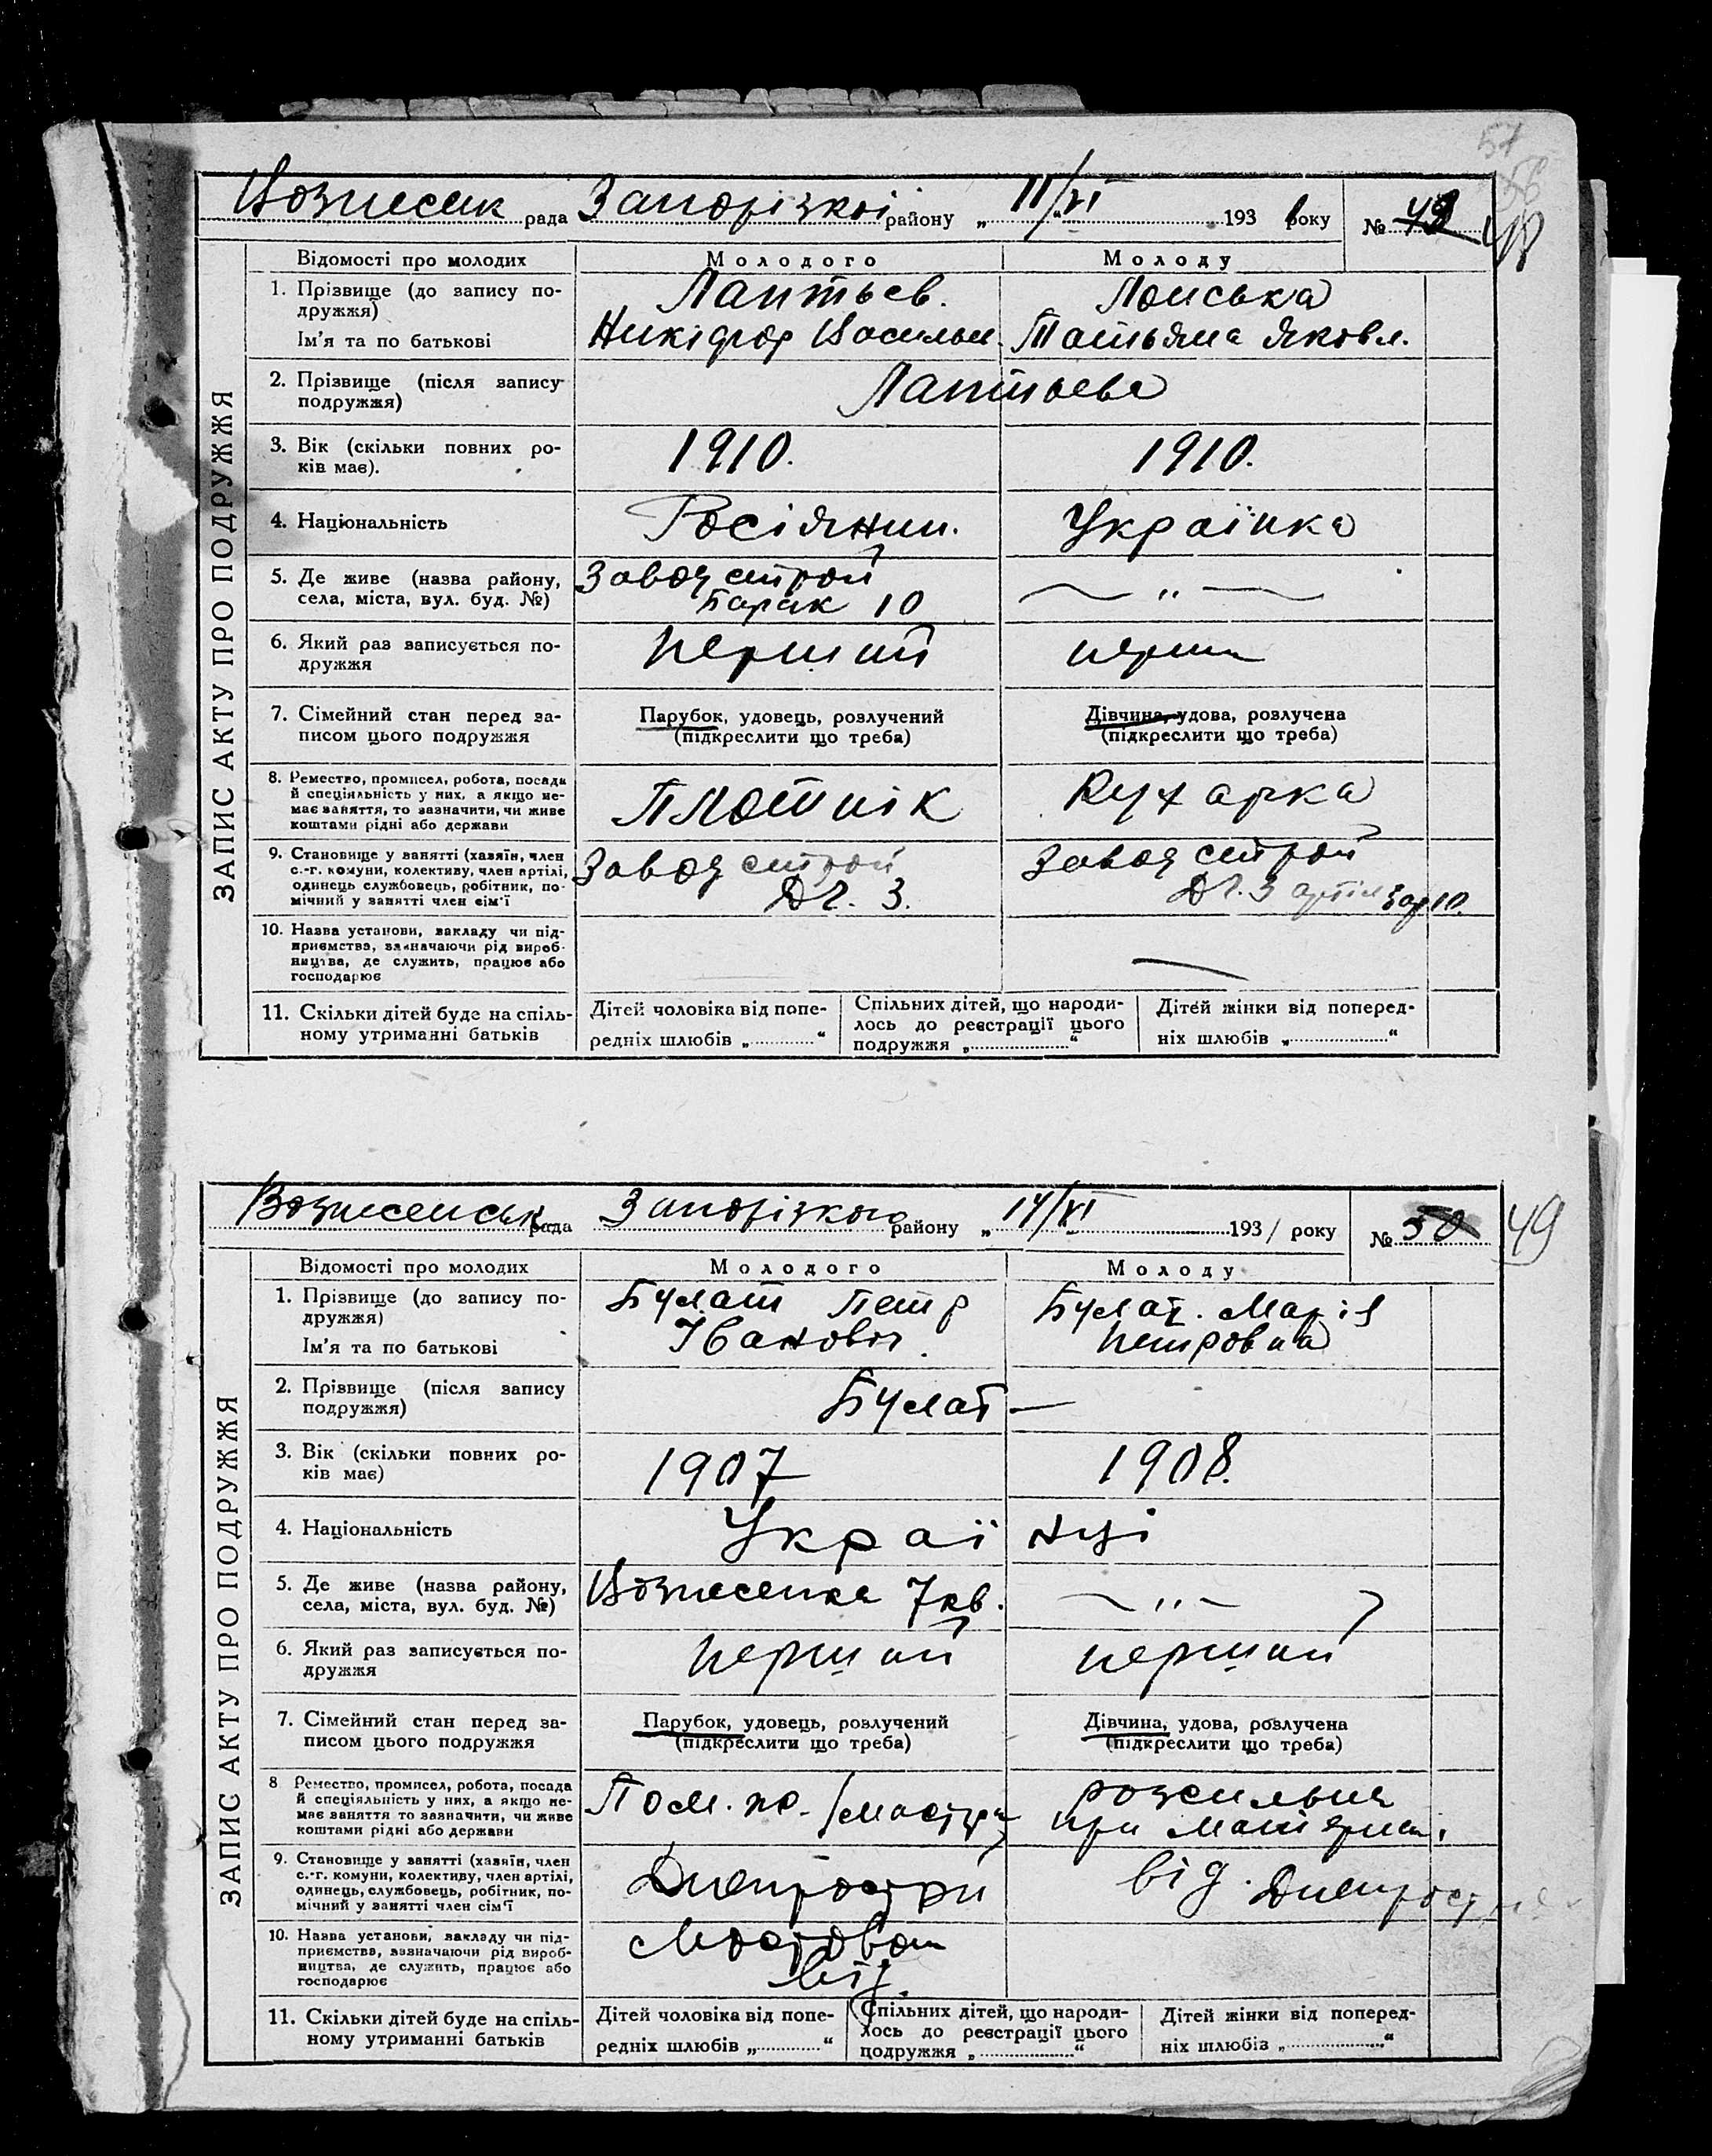 57
56
48
Вознесенк рада Запорізкої району „ 11/VI 1931 року № 49
ЗАПИС АКТУ ПРО ПОДРУЖЖЯ
Відомості про молодих Молодого Молоду
1. Прізвище (до запису по- Лаптьев. Лонська
дружжя)
Ім'я та по батькові Никіфор Васильи. Татьяна Яковл.
2. Прізвище (після запису Лаптьева
подружжя)
3. Вік (скільки повних ро- 1910. 1910.
ків має).
4. Національність Росіянин. Українка
5. Де живе (назва району, Заводстрой — „ —
села, міста, вул. буд. №) Барак 10
6. Який раз записується по- перший перши
дружжя
7. Сімейний стан перед за- Парубок, удовець, розлучений Дівчина, удова, розлучена
писом цього подружжя (підкреслити що треба) (підкреслити що треба)
8. Ремество, промисел, робота, посада
й спеціяльність у них, а якщо не- Плотнік Кухарка
має заняття, то зазначити, чи живе
коштами рідні або держави
9. Становище у занятті (хазяїн, член Заводстрой Заводстрой
с.-г. комуни, колективу, член артілі,
одинець службовець, робітник, по- Д2. 3. Д2. 3
мічний у занятті член сім'ї
10. Назва установи, закладу чи під-
приємства, зазначаючи рід вироб-
ництва, де служить, працює або
господарює
11. Скільки дітей буде на спіль- Дітей чоловіка від попе- Спільних дітей, що народи- Дітей жінки від поперед-
ному утриманні батьків редніх шлюбів „ “ лось до реєстрації цього ніх шлюбів „ “
подружжя „ “
Вознесенськ рада Запорізкого району „ 14/VI 1931 року № 50 49
ЗАПИС АКТУ ПРО ПОДРУЖЖЯ
Відомості про молодих Молодого Молоду
1. Прізвище (до запису по- Булат Петр Булат. Марія
дружжя)
Ім'я та по батькові Іванович. Петровна
2. Прізвище (після запису Булат —
подружжя)
3. Вік (скільки повних ро- 1907 1908.
ків має)
4. Національність Украї нці
5. Де живе (назва району, Вознесенка 7 кв. — „ —
села, міста, вул. буд. №)
6. Який раз записується по- перший перший
дружжя
7. Сімейний стан перед за- Парубок, удовець, розлучений Дівчина, удова, розлучена
писом цього подружжя (підкреслити що треба) (підкреслити що треба)
8 Ремество, промисел, робота, посада розсильна
й спеціяльність у них, а якщо не- Пом.
має заняття то зазначити, чи живе при
коштами рідні або держави
9. Становище у занятті (хазяїн, член від.
с.-г. комуни, колективу, член артілі,
одинець, службовець, робітник, по-
мічний у занятті член сім'ї
10. Назва установи, закладу чи під-
приємства, зазначаючи рід вироб-
ництва, де служить, працює або від.
господарює
11. Скільки дітей буде на спіль- Дітей чоловіка від попе- Спільних дітей, що народи- Дітей жінки від поперед-
ному утриманні батьків редніх шлюбів „ “ лось до реєстрації цього ніх шлюбів „ “
подружжя „ “